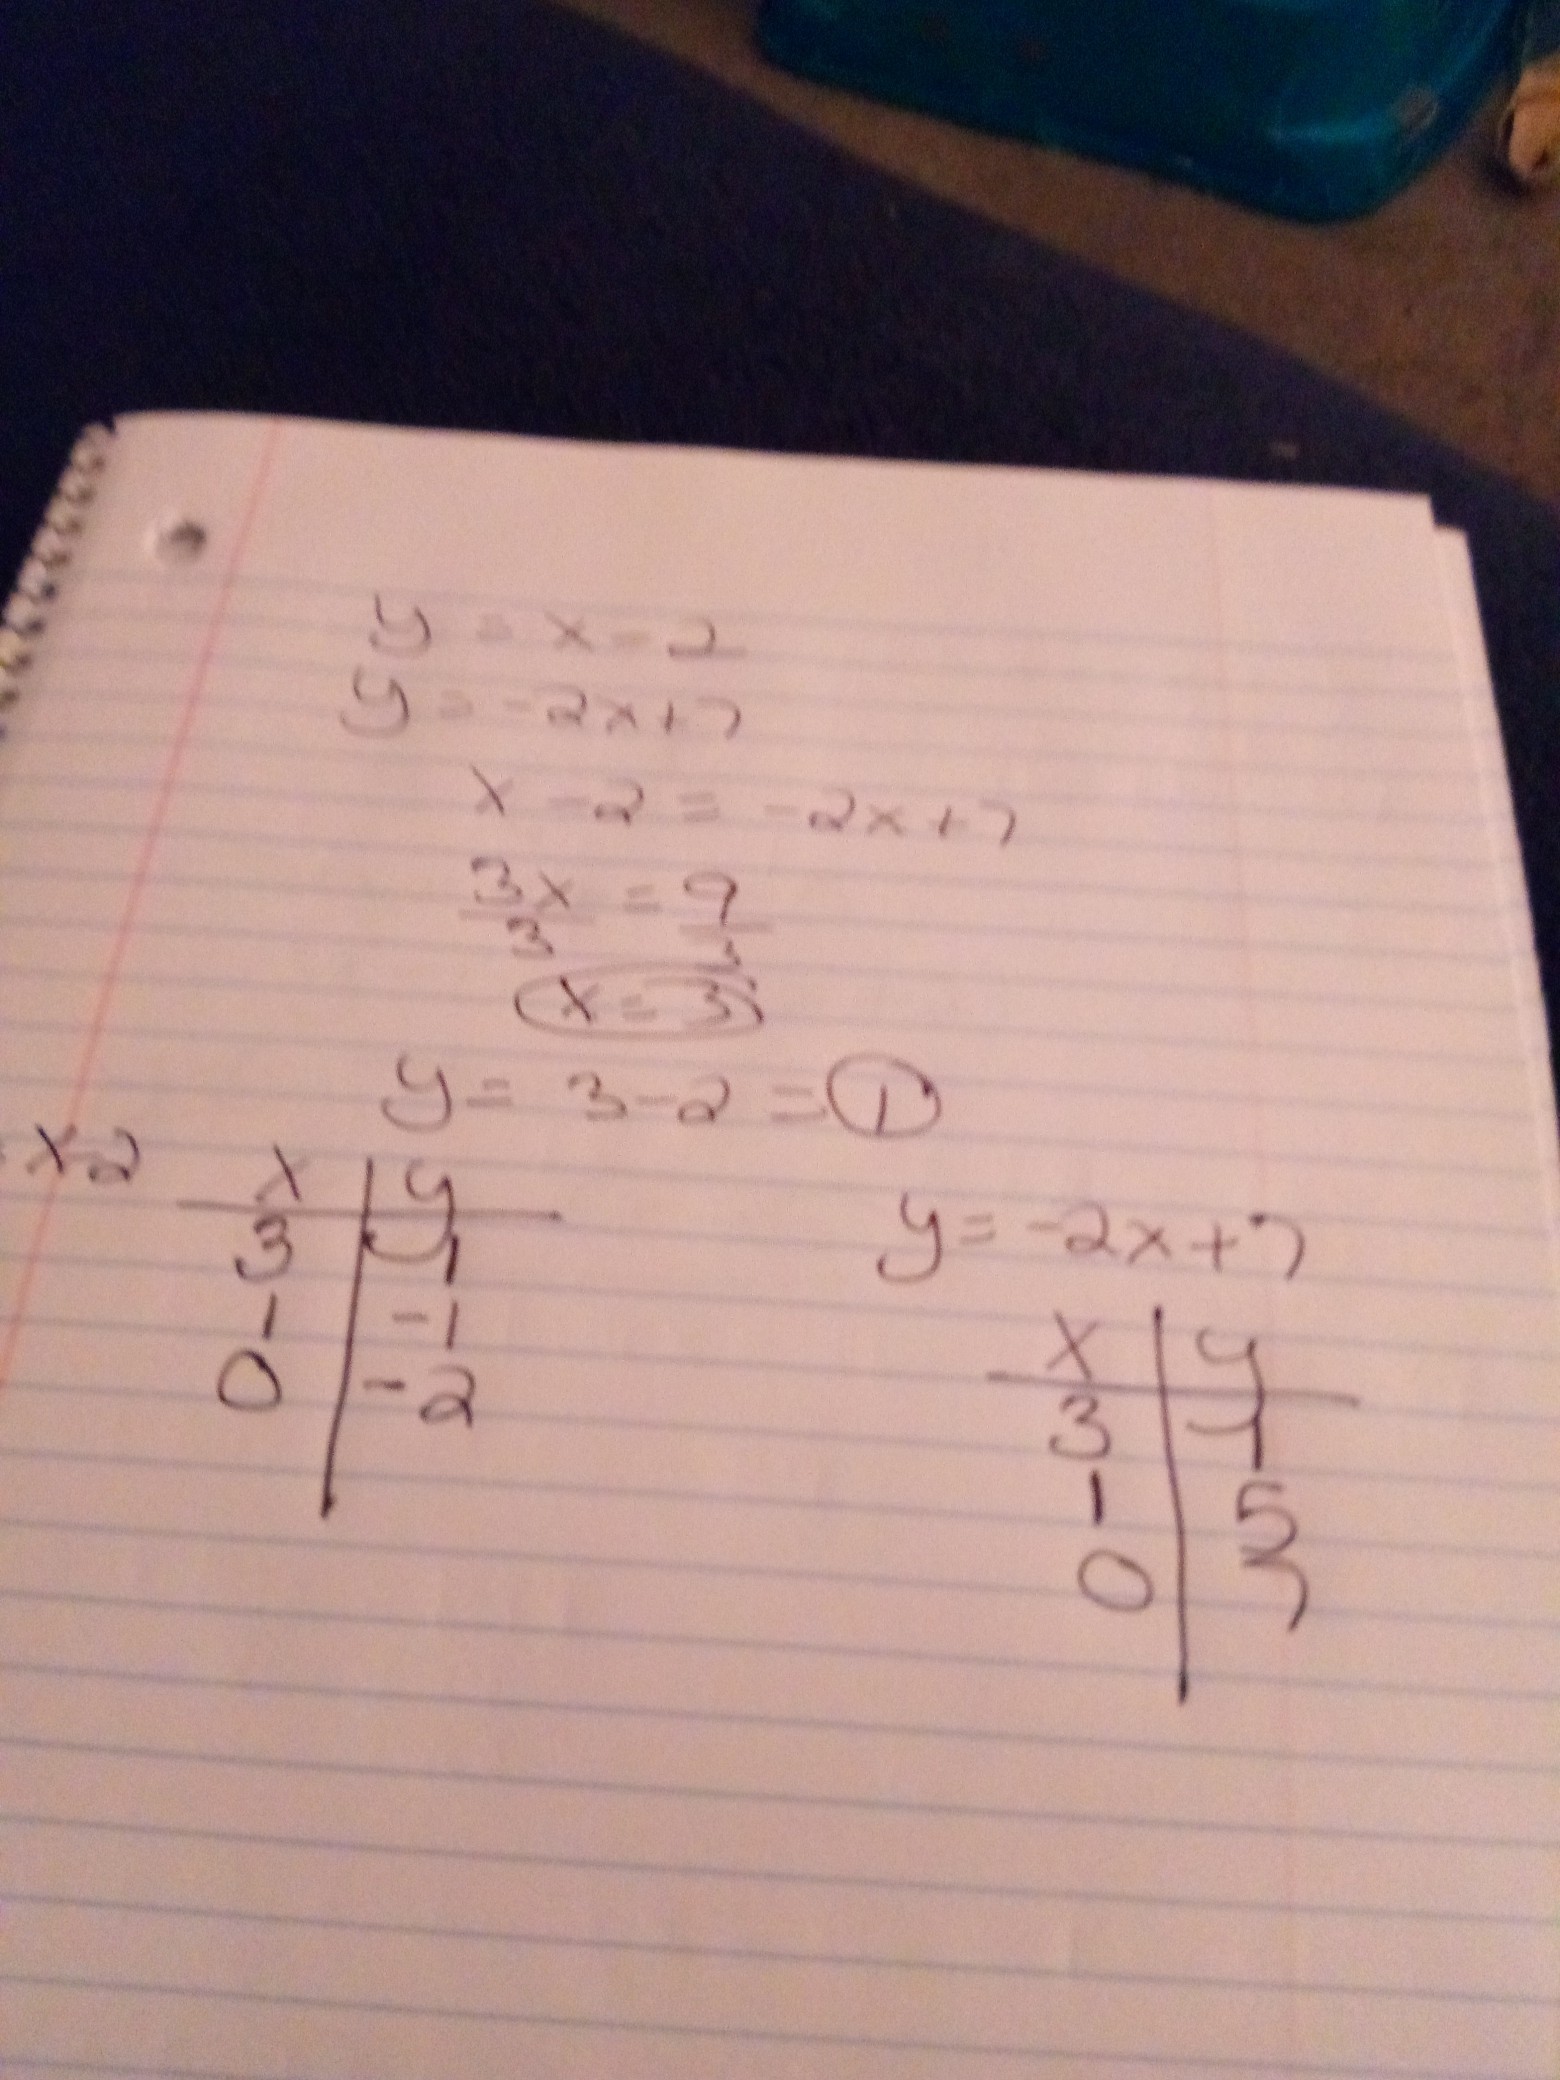 y = x - 2
y = -2x+7
x - 2 = -2x+7
3x = 9
3 3
x = 3
y = 3-2 = 1
x-2
x y
3 4
1 -1
0 -2
y = -2x+7
x y
3 4
1 5
0 7